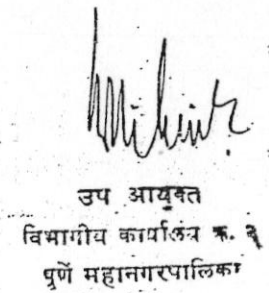 उप आयुक्त
विभागीय कार्यालय क. ३
पुणें महानगरपालिका